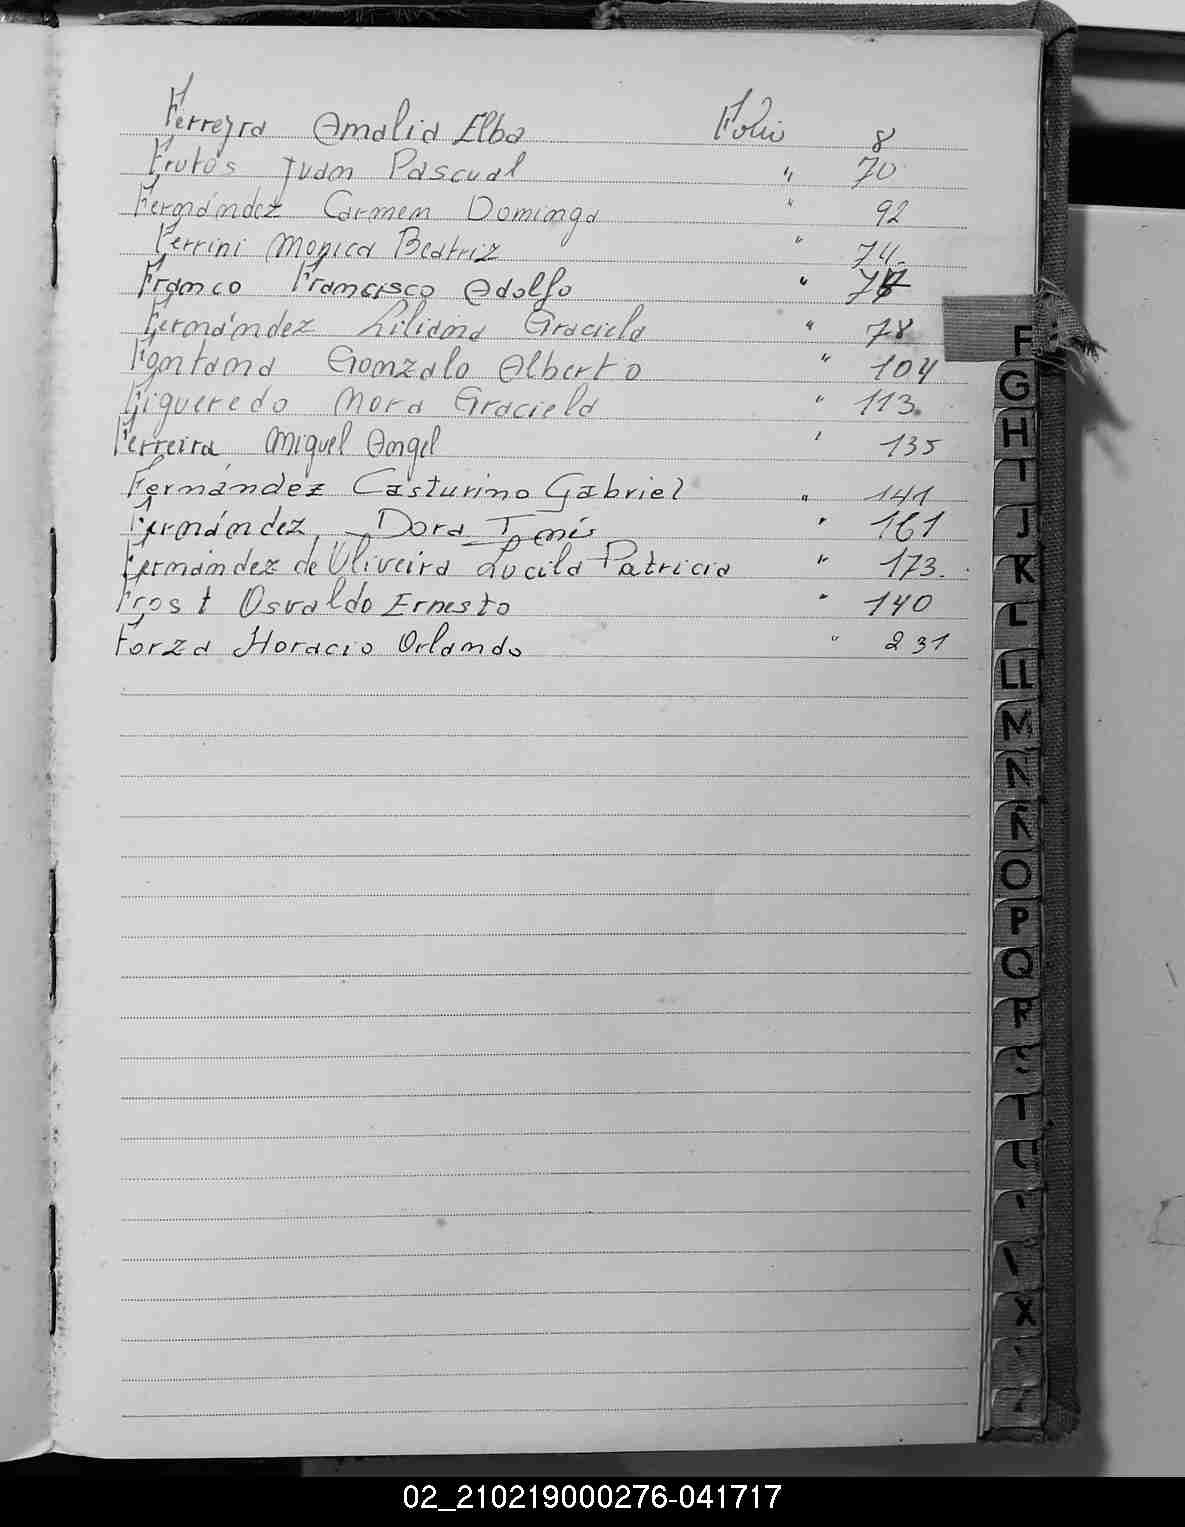 Ferreyra Amalia Elba Folio 8
Frutos Juan Pascual " 70
Fernández Carmen Dominga " 92
Ferrini Monica Beatriz " 74.
Franco Francisco Adolfo "
Fernández Liliana Graciela " 78
Fontana Gonzalo Alberto " 104
Figueredo Nora Graciela " 113
Ferreira, Miguel Angel " 135
Fernández Casturino Gabriel " 141
Fernández, Dora Inés " 161
Fernández de Oliveira Lucila Patricia " 173.
Frost Osvaldo Ernesto " 140
Forza Horacio Orlando " 231
F
G
H
I
J
K
L
LL
M
N
Ñ
O
P
Q
R
T
X
02_210219000276-041717